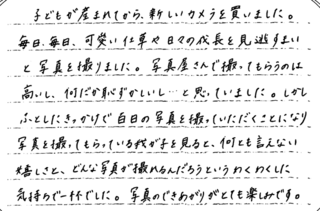 子どもが産まれてから、新しいカメラを買いました。
毎日、毎日、可愛い仕草や日々の成長を見逃すまい
と写真を撮りました。写真屋さんで撮ってもらうのは
高いし、何だか恥ずかしいし…と思っていました。しかし
ふとしたきっかけで百日の写真を撮っていただくことになり
写真を撮ってもらっている我が子を見ると、何とも言えない
嬉しさと、どんな写真が撮れるんだろうというわくわくした
気持ちで一杯でした。写真のできあがりがとても楽しみです。